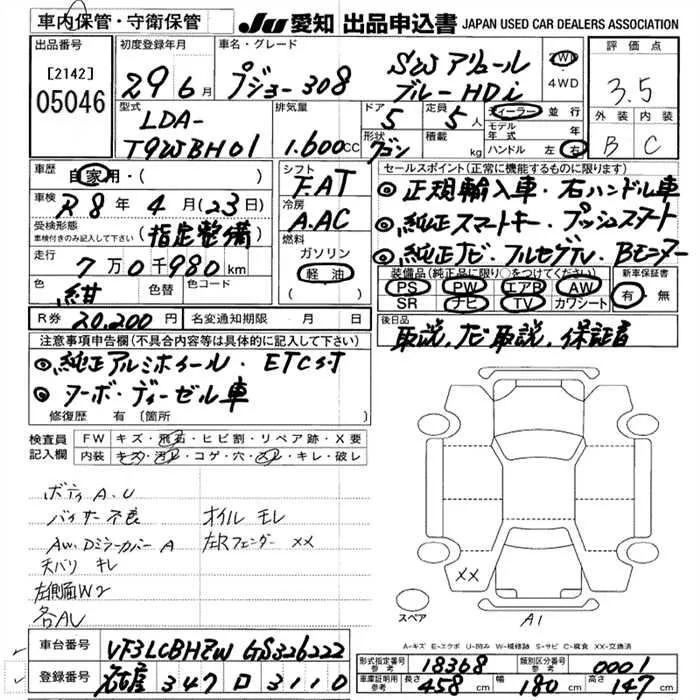 車内保管・守衛保管
JU 愛知 出品申込書 JAPAN USED CAR DEALERS ASSOCIATION
出品番号
[2142]
05046
初度登録年月
29 6月
車名・グレード
プジョー308 SWアリュール
ブルーHDi
2WD
・4WD
評価点
3.5
外装 内装
B C
型式
LDA-
T9WBH01
排気量
1.600cc
ドア
5
定員
5人
形状
ワゴン
積載
kg
ディーラー 並行
モデル年式 年
ハンドル 左 右
車歴
自家用・( )
車検
R8年 4月(23日)
受検形態
車検付きのみ記入して下さい
(指定整備)
走行
7万0千980km
色
紺
色替
色コード
シフト
F.AT
冷房
A.AC
燃料
ガソリン
軽油
セールスポイント(正常に機能するものに限ります)
◎正規輸入車・右ハンドル車
◎純正スマートキー・プッシュスタート
◎純正ナビ・フルセグTV・Bモニター
装備品(純正品に限り○をつけてください)
PS PW エアB AW
SR ナビ TV カワシート
新車保証書
有・無
R券 20,200円
名変通知期限 月 日
後日品
取説、ナビ取説、保証書
注意事項申告欄(不具合内容等は具体的に記入して下さい)
◎純正アルミホイール・ETC付
◎ターボ・ディーゼル車
修復歴 有〔箇所
検査員
記入欄
FW キズ・飛石・ヒビ割・リペア跡・X要
内装 キズ・汚れ・コゲ・穴・スレ・キレ・破レ
ボディA.U
バイザー不良 オイルモレ
AW、Dミラーカバー A 左Rフェンダー XX
天バリ キレ
左側面W2
各AU
XX
A1
スペア
A-キズ E-エクボ U-凹み W-補修跡 S-サビ C-腐食 XX-交換済
車台番号 VF3LCBHZW GS326222
登録番号 名古屋 347 ロ 3110
形式指定番号
参考
18368
類別区分番号
参考
0001
車庫証明用
参考
長さ 458cm 幅 180cm 高さ 147cm